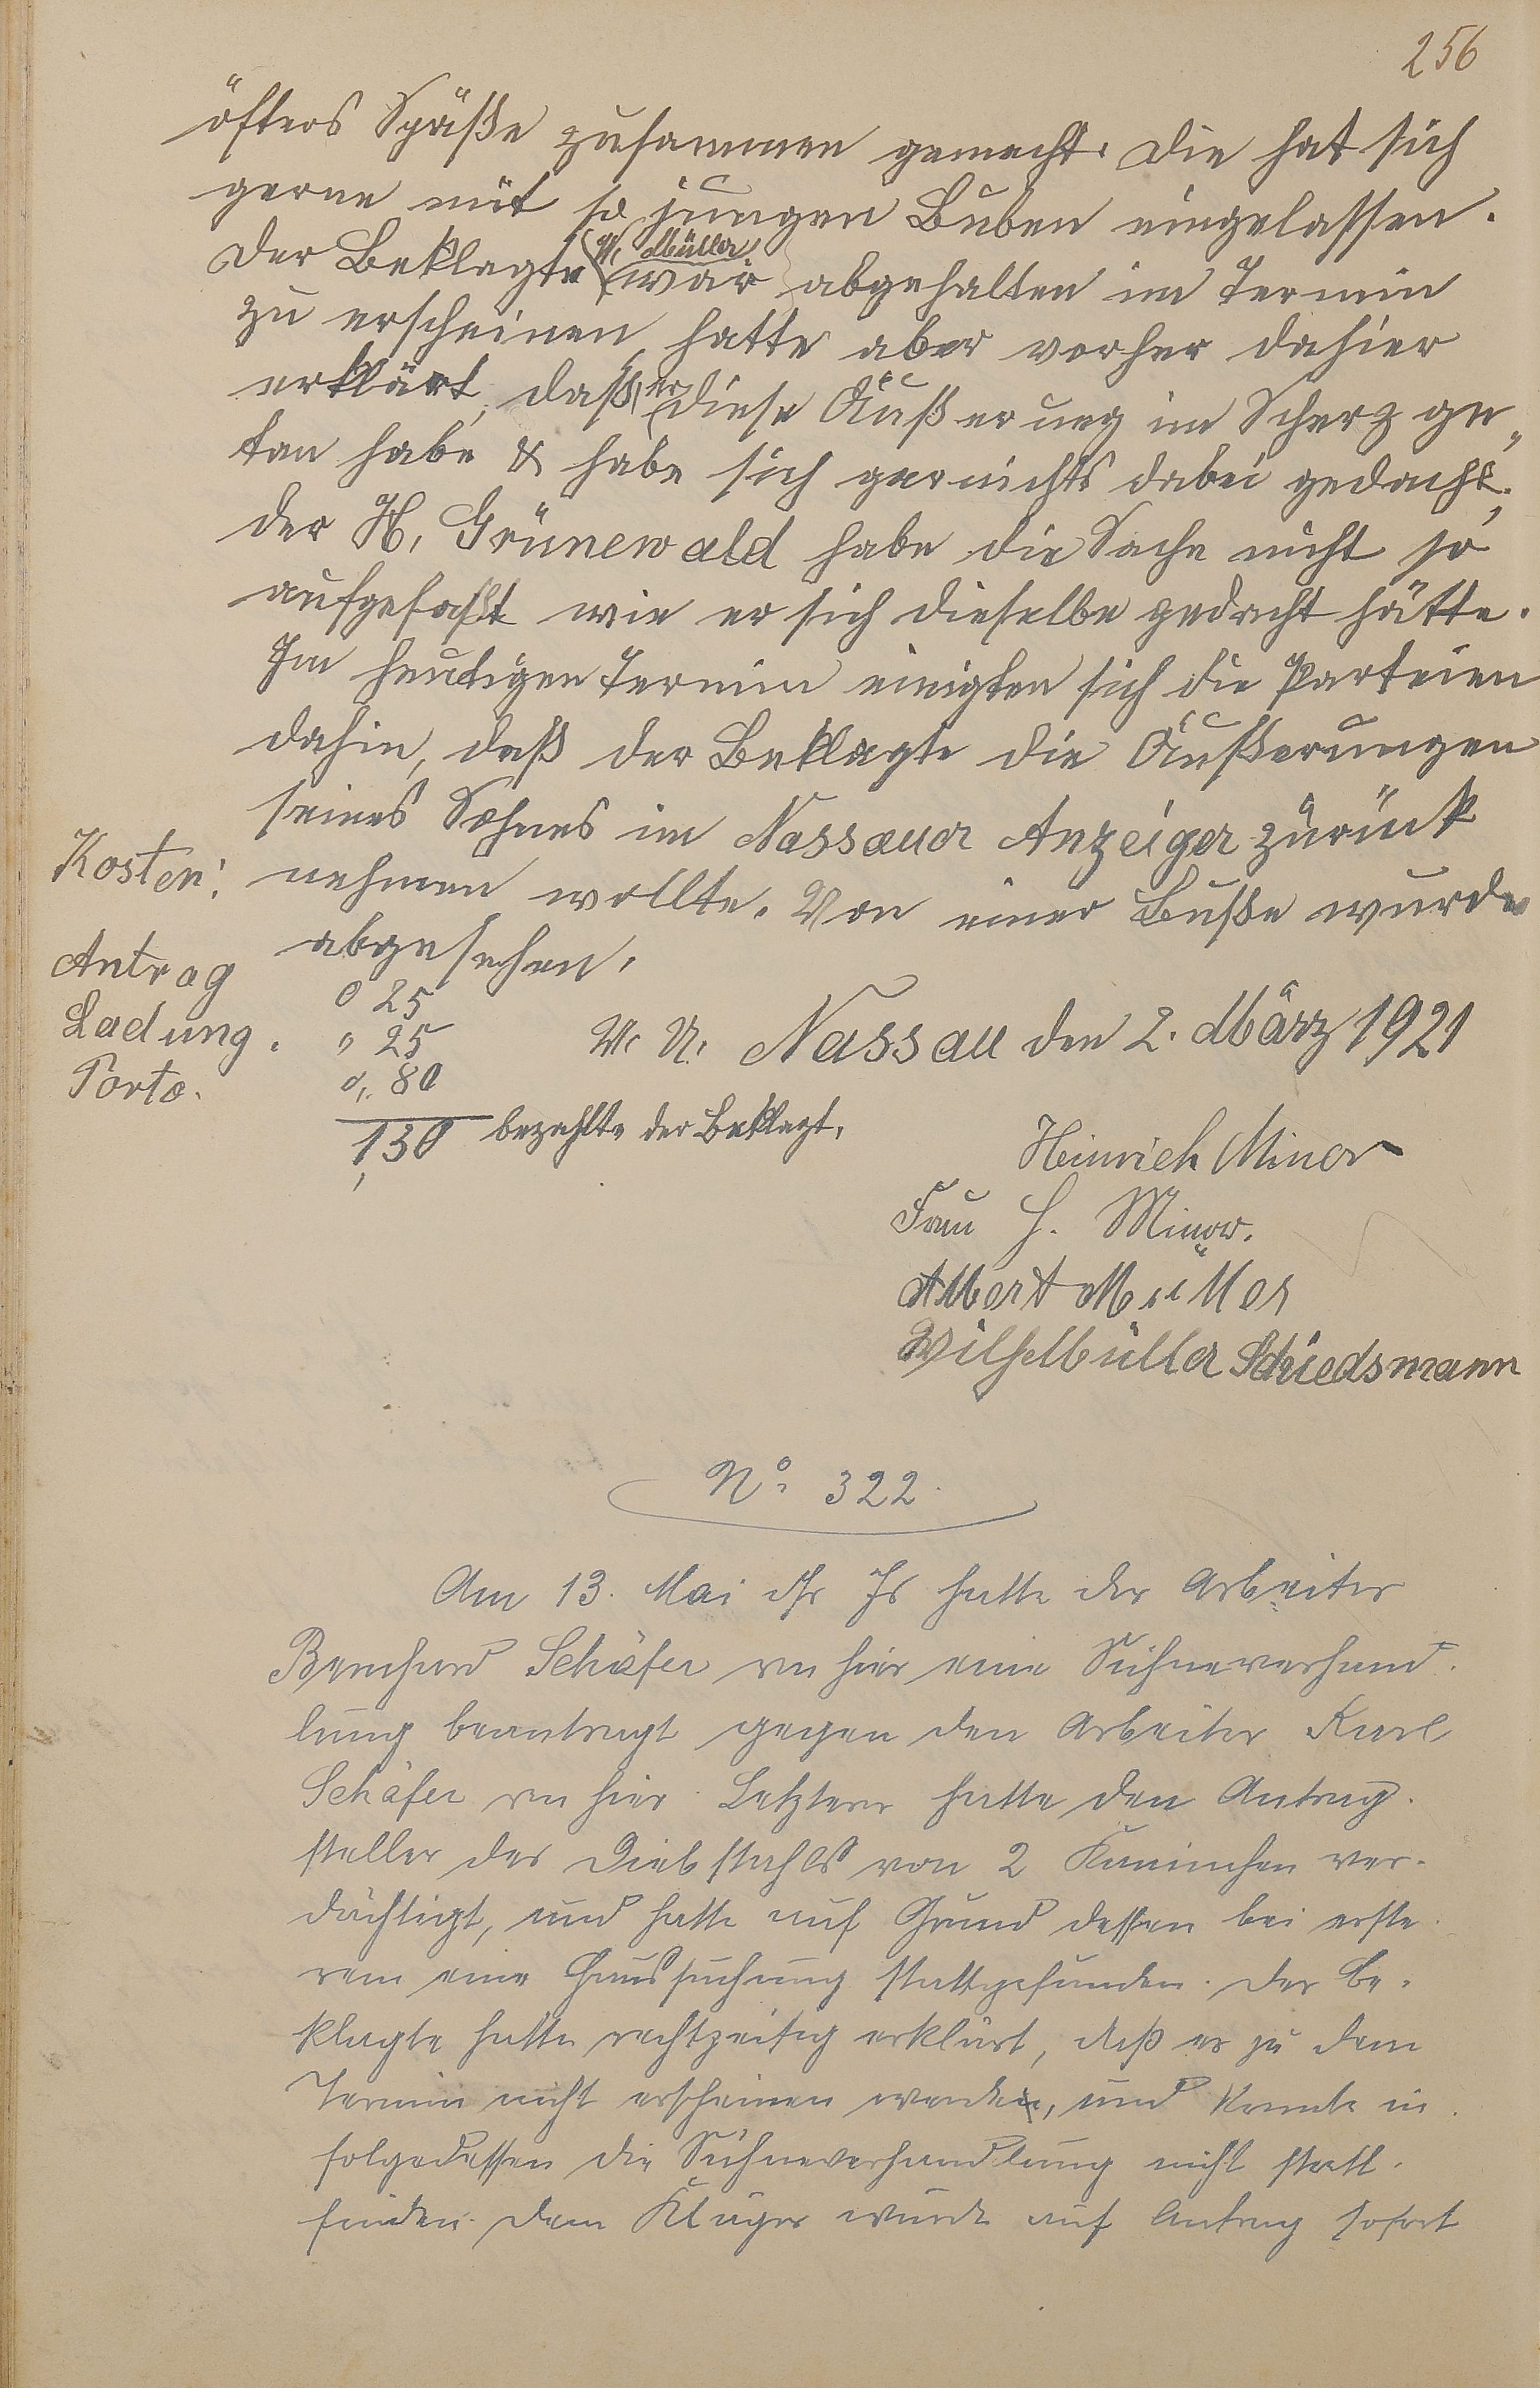 256
öfters Späße zusammen gemacht. Die hat sich
gerne mit so jungen Buben eingelassen.
Der Beklagte (W. Müller) war abgehalten im Termin
zu erscheinen, hatte aber vorher dahier
erklärt, daß er diese Äußerung im Scherz ge„
tan habe & habe sich garnichts dabei gedacht,
der H. Grünewald habe die Sache nicht so
aufgefaßt wie er sich dieselbe gedacht hätte.
Im heutigen Termin einigten sich die Parteien
dahin, daß der Beklagte die Äußerungen
seines Sohnes im Nassauer Anzeiger zurück
nehmen wollte. Von einer Buße wurde
abgesehen.
Kosten:
Antrag 0 25
Ladung. " 25
Porto. 0,. 80
1,30 bezahlte der Beklagt.
V. U. Nassau den 2. März 1921
Heinrich Minor
Frau H. Minor.
Albert Müller
Wilh Müller Schiedsmann
No. 322.
Am 13. Mai ds Js hatte der Arbeiter
Bernhard Schäfer von hier eine Sühneverhand-
lung beantragt gegen den Arbeiter Karl
Schäfer von hier. Letzterer hatte den Antrag-
steller des Diebstahls von 2 Kaninchen ver-
dächtigt, und hatte auf Grund dessen bei erste-
rem eine Haussuchung stattgefunden. Der Be-
klagte hatte rechtzeitig erklärt, daß er zu dem
Termin nicht erscheinen werde, und konnte in-
folgedessen die Sühneverhandlung nicht statt-
finden. Dem Kläger wurde auf Antrag sofort